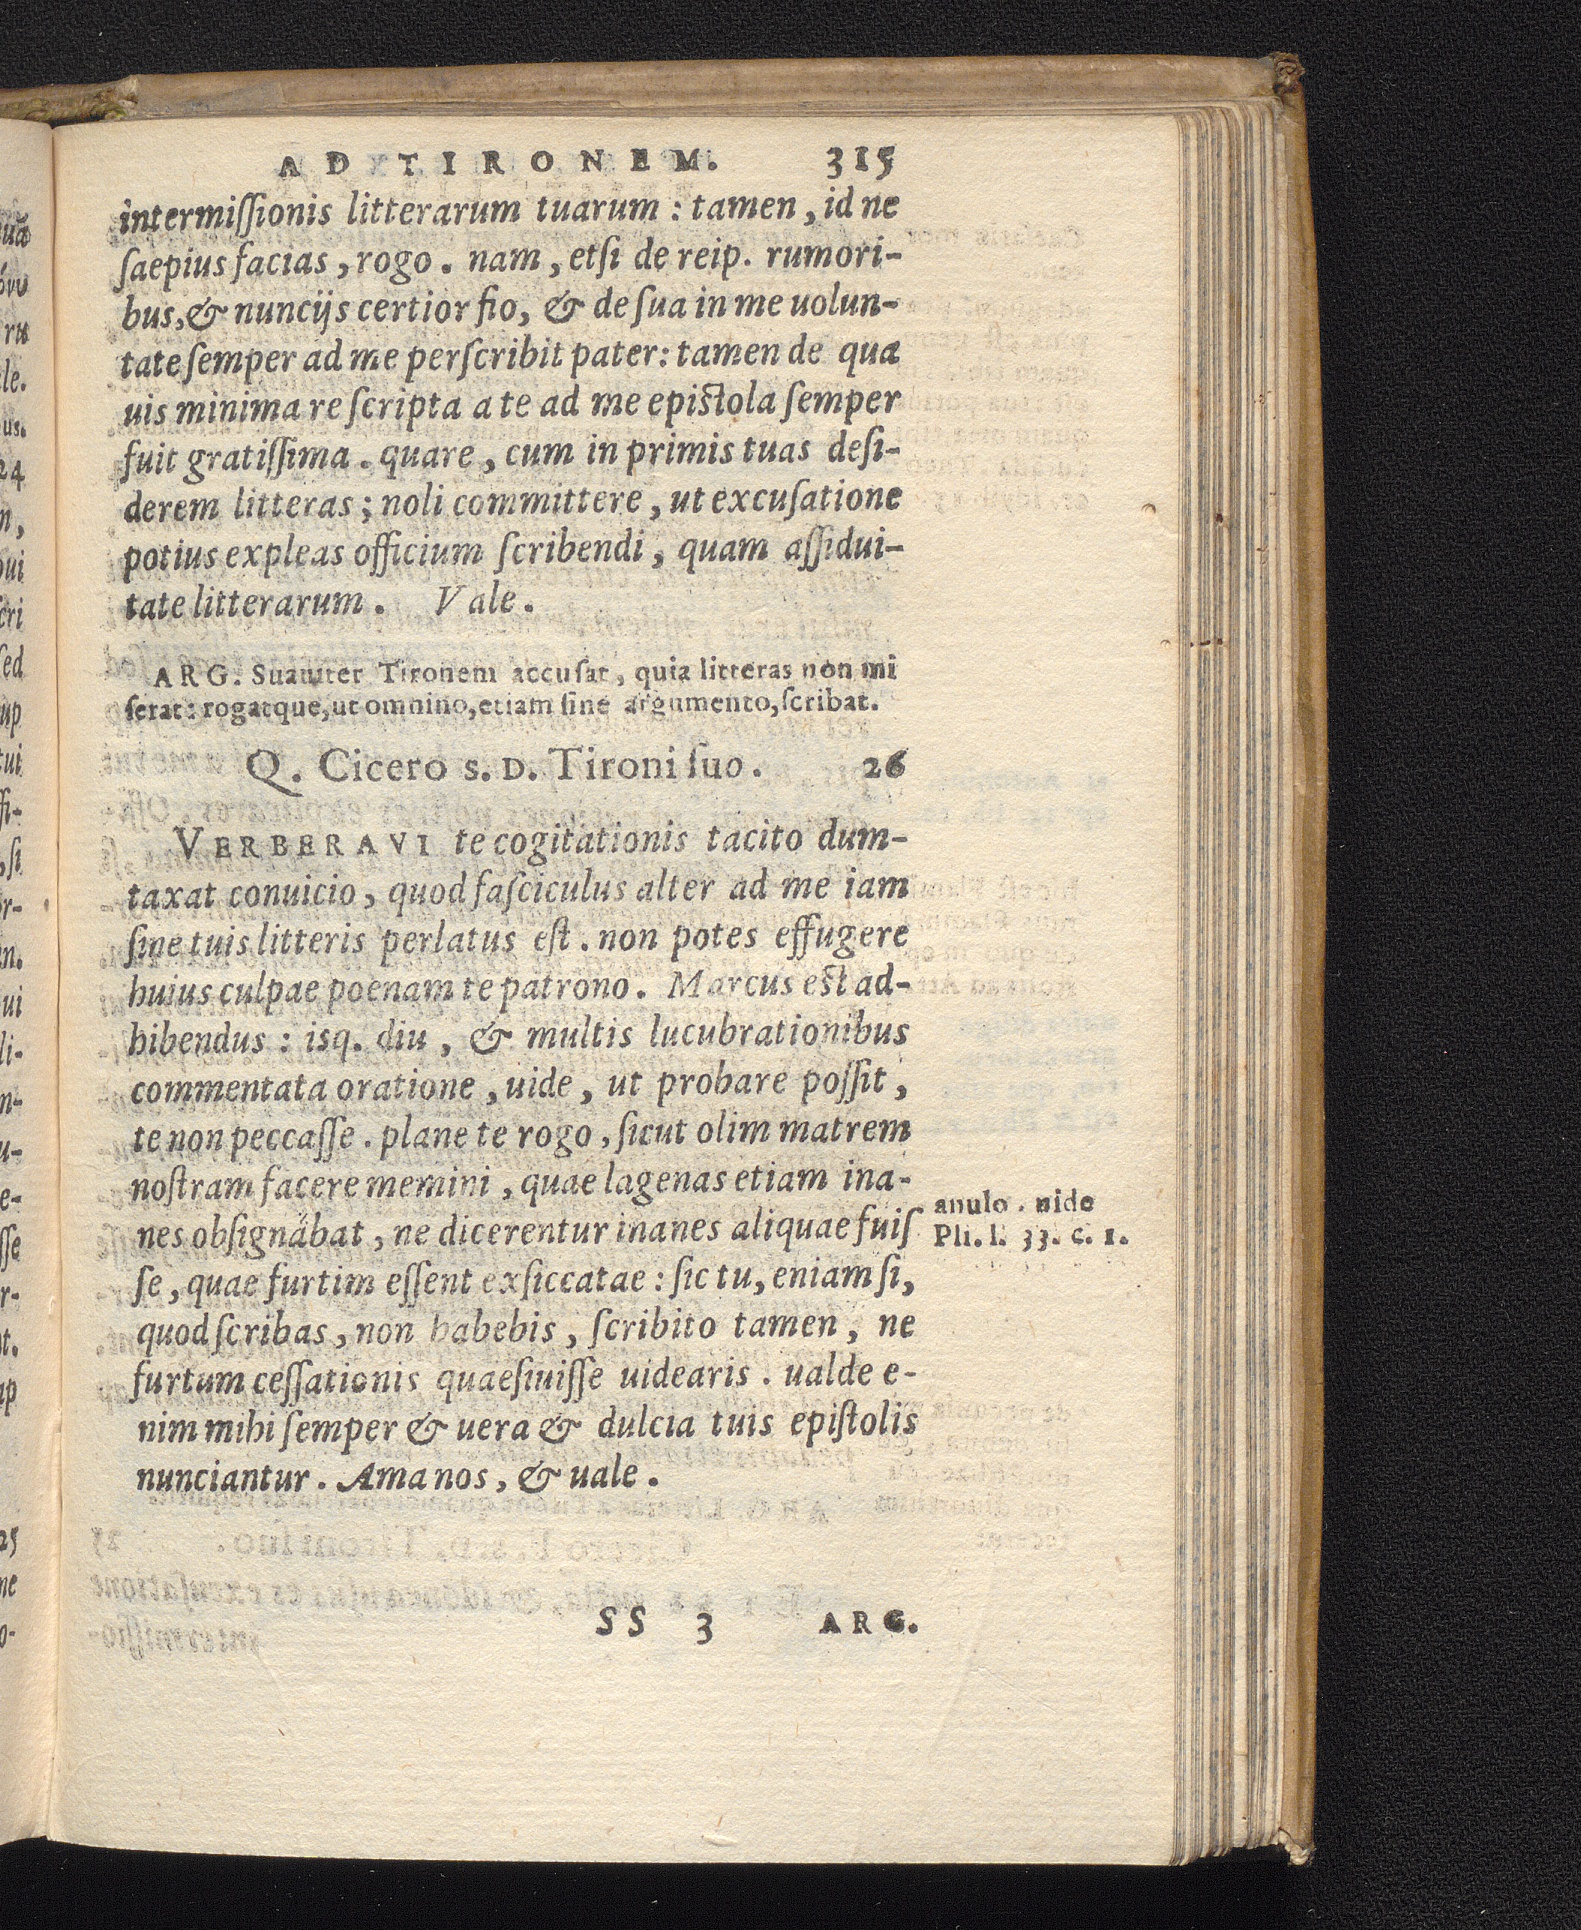 AD TIRONEM. 315
intermiſſionis litterarum tuarum : tamen , id ne
ſaepius facias , rogo . nam , etſi de reip. rumori-
bus, & nuncijs certior fio, & de ſua in me uolun-
tate ſemper ad me perſcribit pater: tamen de qua
uis minima re ſcripta a te ad me epiſtola ſemper
fuit gratiſſima . quare , cum in primis tuas deſi-
derem litteras ; noli committere , ut excuſatione
potius expleas officium ſcribendi , quam aſſidui-
tate litterarum . Vale .
ARG. Suauiter Tironem accuſat , quia litteras non mi
ſerat : rogatque, ut omnino, etiam ſine argumento, ſcribat.
Q. Cicero s. D. Tironi ſuo . 26
VERBERAVI te cogitationis tacito dum-
taxat conuicio , quod faſciculus alter ad me iam
ſine tuis litteris perlatus eſt . non potes effugere
huius culpae poenam te patrono . Marcus eſt ad-
hibendus : isq. diu , & multis lucubrationibus
commentata oratione , uide , ut probare poſſit ,
te non peccaſſe . plane te rogo , ſicut olim matrem
noſtram facere memini , quae lagenas etiam ina-
nes obſignabat , ne dicerentur inanes aliquae fuiſ
ſe , quae furtim eſſent exſiccatae : ſic tu, eniam ſi,
quod ſcribas , non habebis , ſcribito tamen , ne
furtum ceſſationis quaeſiuiſſe uidearis . ualde e-
nim mihi ſemper & uera & dulcia tuis epiſtolis
nunciantur . Ama nos , & uale .
anulo . uide
Pli. l. 33. c. 1.
SS 3 ARG.